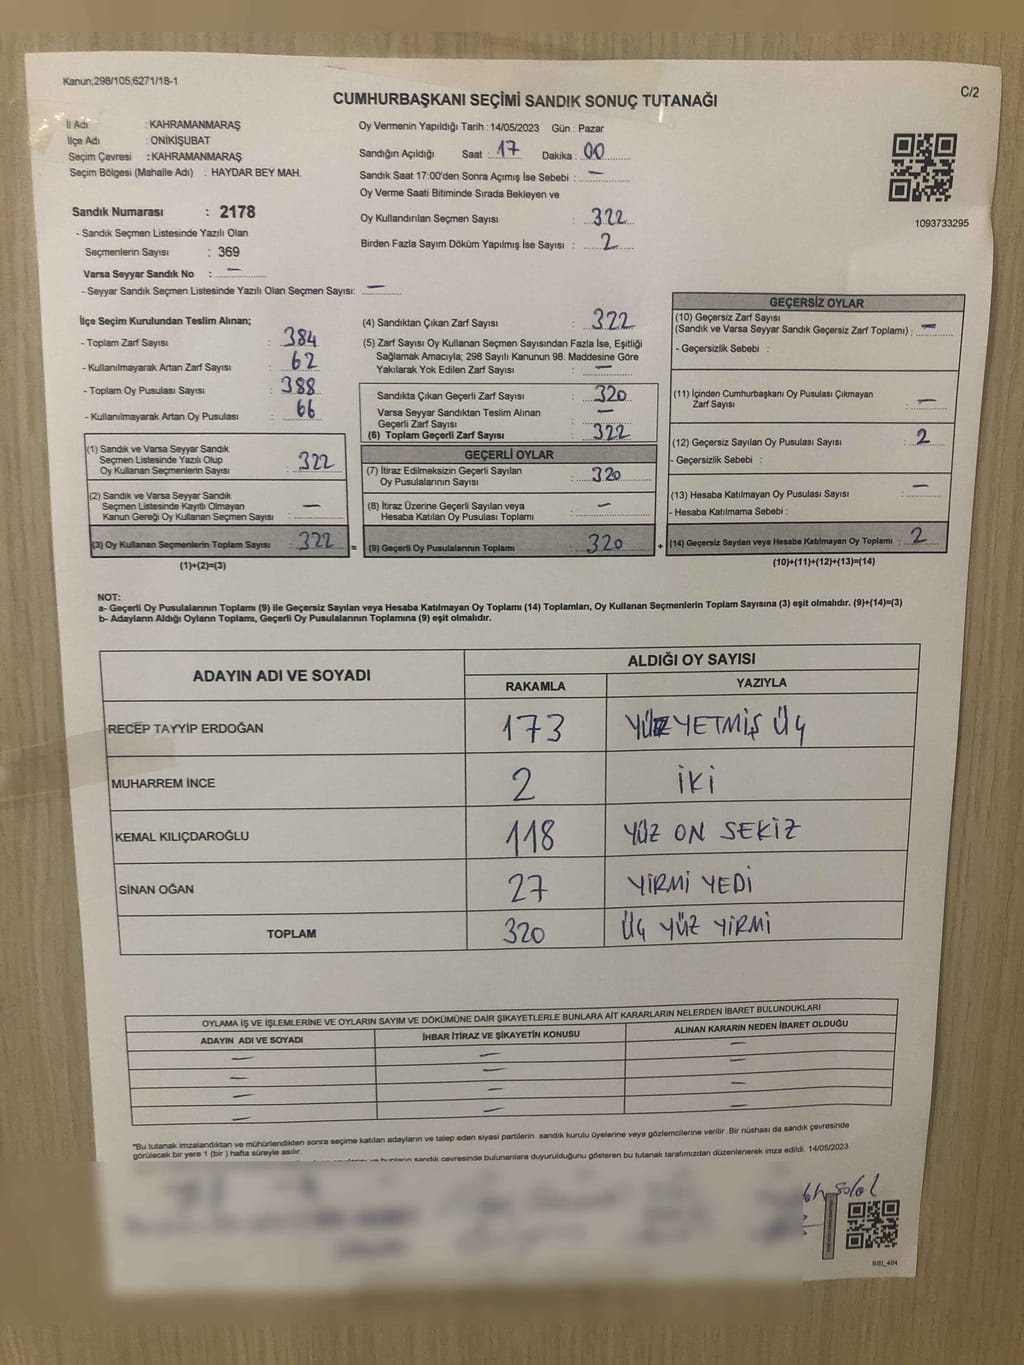 Kanun;298/105,6271/18-1
C/2
CUMHURBAŞKANI SEÇİMİ SANDIK SONUÇ TUTANAĞI
İl Adı : KAHRAMANMARAŞ
İlçe Adı : ONİKİŞUBAT
Seçim Çevresi : KAHRAMANMARAŞ
Seçim Bölgesi (Mahalle Adı) : HAYDAR BEY MAH.
Sandık Numarası : 2178
- Sandık Seçmen Listesinde Yazılı Olan
Seçmenlerin Sayısı : 369
Varsa Seyyar Sandık No : —
- Seyyar Sandık Seçmen Listesinde Yazılı Olan Seçmen Sayısı: —
Oy Vermenin Yapıldığı Tarih : 14/05/2023 Gün : Pazar
Sandığın Açıldığı Saat : 17 Dakika : 00
Sandık Saat 17:00'den Sonra Açımış İse Sebebi : —
Oy Verme Saati Bitiminde Sırada Bekleyen ve
Oy Kullandırılan Seçmen Sayısı : 322
Birden Fazla Sayım Döküm Yapılmış İse Sayısı : 2
1093733295
İlçe Seçim Kurulundan Teslim Alınan;
- Toplam Zarf Sayısı : 384
- Kullanılmayarak Artan Zarf Sayısı : 62
- Toplam Oy Pusulası Sayısı : 388
- Kullanılmayarak Artan Oy Pusulası : 66
(1) Sandık ve Varsa Seyyar Sandık
Seçmen Listesinde Yazılı Olup
Oy Kullanan Seçmenlerin Sayısı : 322
(2) Sandık ve Varsa Seyyar Sandık
Seçmen Listesinde Kayıtlı Olmayan
Kanun Gereği Oy Kullanan Seçmen Sayısı : —
(3) Oy Kullanan Seçmenlerin Toplam Sayısı : 322 =
(1)+(2)=(3)
(4) Sandıktan Çıkan Zarf Sayısı : 322
(5) Zarf Sayısı Oy Kullanan Seçmen Sayısından Fazla İse, Eşitliği
Sağlamak Amacıyla; 298 Sayılı Kanunun 98. Maddesine Göre
Yakılarak Yok Edilen Zarf Sayısı : —
Sandıkta Çıkan Geçerli Zarf Sayısı : 320
Varsa Seyyar Sandıktan Teslim Alınan
Geçerli Zarf Sayısı : —
(6) Toplam Geçerli Zarf Sayısı : 322
GEÇERLİ OYLAR
(7) İtiraz Edilmeksizin Geçerli Sayılan
Oy Pusulalarının Sayısı : 320
(8) İtiraz Üzerine Geçerli Sayılan veya
Hesaba Katılan Oy Pusulası Toplamı : —
(9) Geçerli Oy Pusulalarının Toplamı : 320 +
GEÇERSİZ OYLAR
(10) Geçersiz Zarf Sayısı
(Sandık ve Varsa Seyyar Sandık Geçersiz Zarf Toplamı) : —
- Geçersizlik Sebebi :
(11) İçinden Cumhurbaşkanı Oy Pusulası Çıkmayan
Zarf Sayısı : —
(12) Geçersiz Sayılan Oy Pusulası Sayısı : 2
- Geçersizlik Sebebi :
(13) Hesaba Katılmayan Oy Pusulası Sayısı : —
- Hesaba Katılmama Sebebi :
(14) Geçersiz Sayılan veya Hesaba Katılmayan Oy Toplamı : 2
(10)+(11)+(12)+(13)=(14)
NOT:
a- Geçerli Oy Pusulalarının Toplamı (9) ile Geçersiz Sayılan veya Hesaba Katılmayan Oy Toplamı (14) Toplamları, Oy Kullanan Seçmenlerin Toplam Sayısına (3) eşit olmalıdır. (9)+(14)=(3)
b- Adayların Aldığı Oyların Toplamı, Geçerli Oy Pusulalarının Toplamına (9) eşit olmalıdır.
ADAYIN ADI VE SOYADI ALDIĞI OY SAYISI
RAKAMLA YAZIYLA
RECEP TAYYİP ERDOĞAN 173 YÜZ YETMİŞ ÜÇ
MUHARREM İNCE 2 İKİ
KEMAL KILIÇDAROĞLU 118 YÜZ ON SEKİZ
SİNAN OĞAN 27 YİRMİ YEDİ
TOPLAM 320 ÜÇ YÜZ YİRMİ
OYLAMA İŞ VE İŞLEMLERİNE VE OYLARIN SAYIM VE DÖKÜMÜNE DAİR ŞİKAYETLERLE BUNLARA AİT KARARLARIN NELERDEN İBARET BULUNDUKLARI
ADAYIN ADI VE SOYADI İHBAR İTİRAZ VE ŞİKAYETİN KONUSU ALINAN KARARIN NEDEN İBARET OLDUĞU
— — —
— — —
— — —
— — —
*Bu tutanak imzalandıktan ve mühürlendikten sonra seçime katılan adayların ve talep eden siyasi partilerin sandık kurulu üyelerine veya gözlemcilerine verilir .Bir nüshası da sandık çevresinde
görülecek bir yere 1 (bir ) hafta süreyle asılır.
ve bunların sandık çevresinde bulunanlara duyurulduğunu gösteren bu tutanak tarafımızdan düzenlenerek imza edildi. 14/05/2023
SSI_404